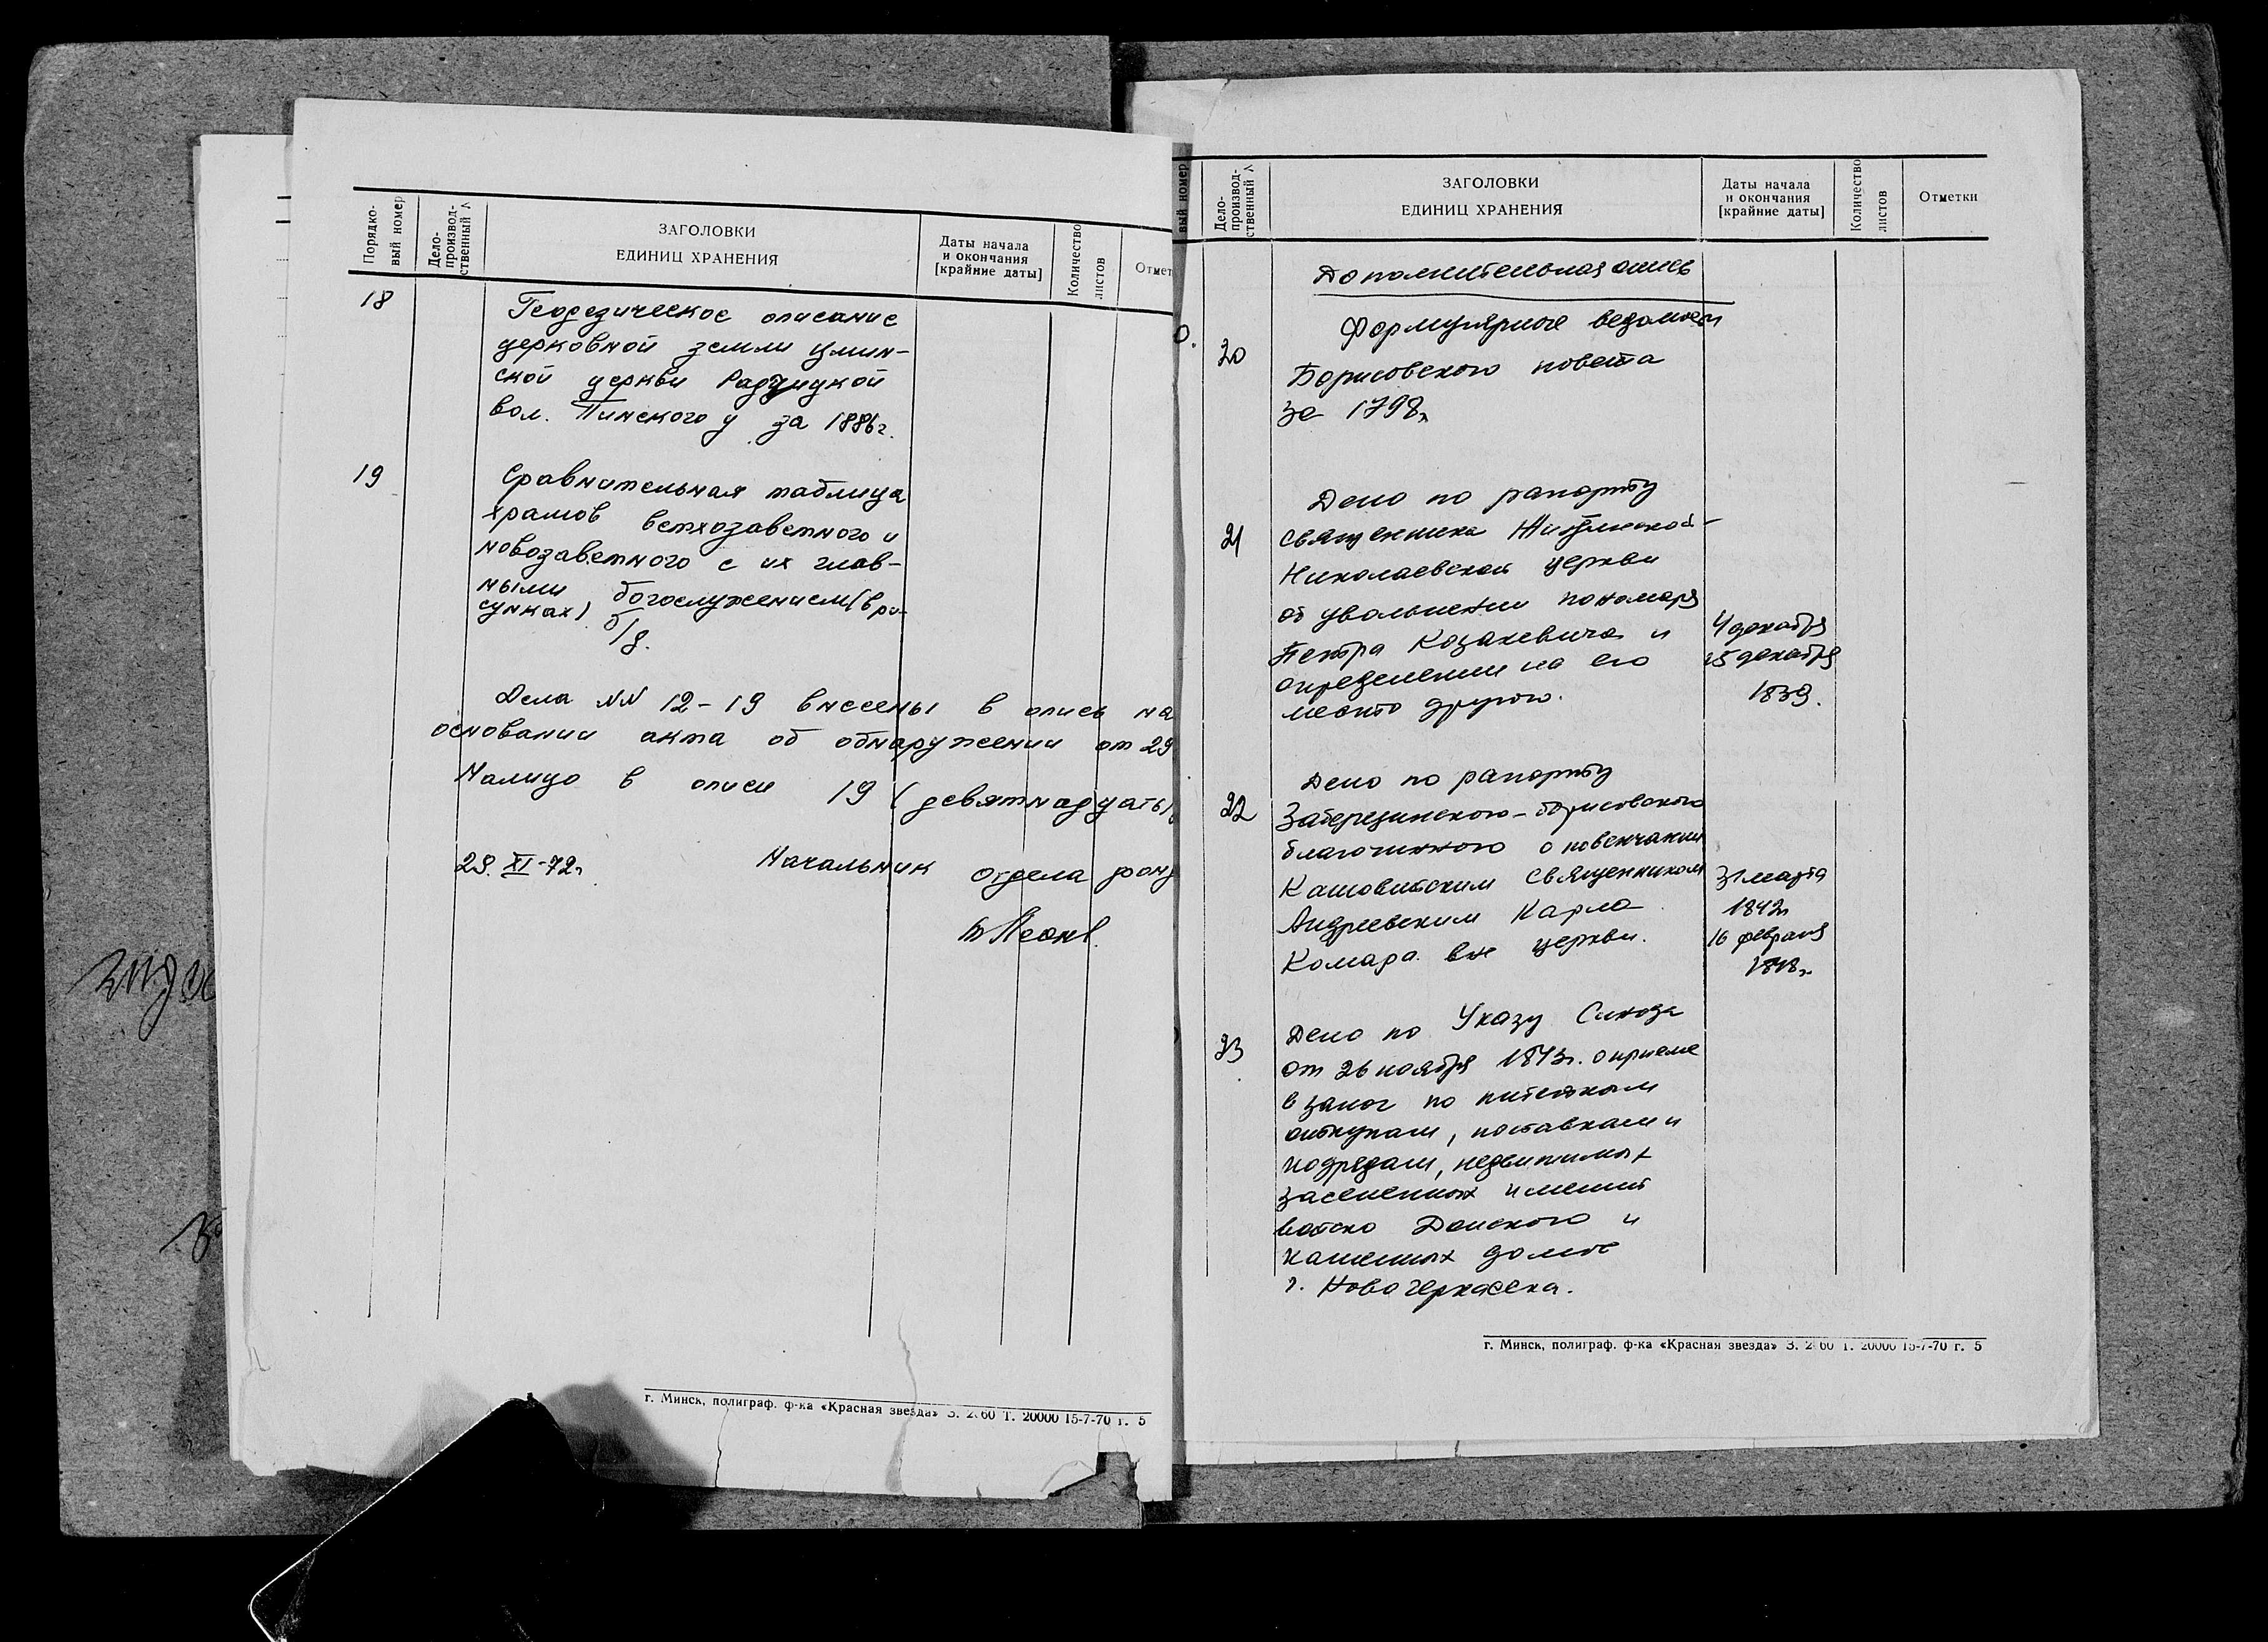 Порядко-
вый номер
Дело-
производ-
ственный
ЗАГОЛОВКИ
ЕДИНИЦ ХРАНЕНИЯ
Даты начала
и окончания
[крайние даты]
Количество
листов
Отмет
18
Геодезическое описание
церковной земли
ской церкви
вол. Пинского у за 1886г.
19
Сравнительная таблица
храмов ветхозаветного и
новозаветного с их глав-
ными богослужением (в ри-
сунках) б/д.
Дела NN 12-19 внесены в опись на
основании акта об обнаружении от 29
Налицо в описи 19 (девятнадцать)
29. XI-72г.
Начальник отдела фонд
вый номер
Дело-
производ-
ственный
ЗАГОЛОВКИ
ЕДИНИЦ ХРАНЕНИЯ
Даты начала
и окончания
[крайние даты]
Количество
листов
Отметки
Дополнительная опись
20
Формулярные ведомости
Борисовского повета
за 1798г.
21
Дело по рапорту
священника
Николаевской церкви
об увольнении пономаря
Петра Козакевича и
определении на его
место другого.
4 декабря
15 декабря
1839.
22
Дело по рапорту
Заберезинского-Борисовского
благочинного о повенчании
священником
Андреевским Карла
Комара вне церкви.
31 марта
1842г
16 февраля
23
Дело по Указу Синода
от 26 ноября 1843г. о приеме
в залог по питейным
откупам, поставкам и
подрядам, недвижимых
заселенных имений
войска Донского и
каменных домов
г. Новочеркасска.
г. Минск, полиграф. ф-ка «Красная звезда» З. 2460 Т. 20000 15-7-70 г. 5
г. Минск, полиграф. ф-ка «Красная звезда» З. 2460 Т. 20000 15-7-70 г. 5